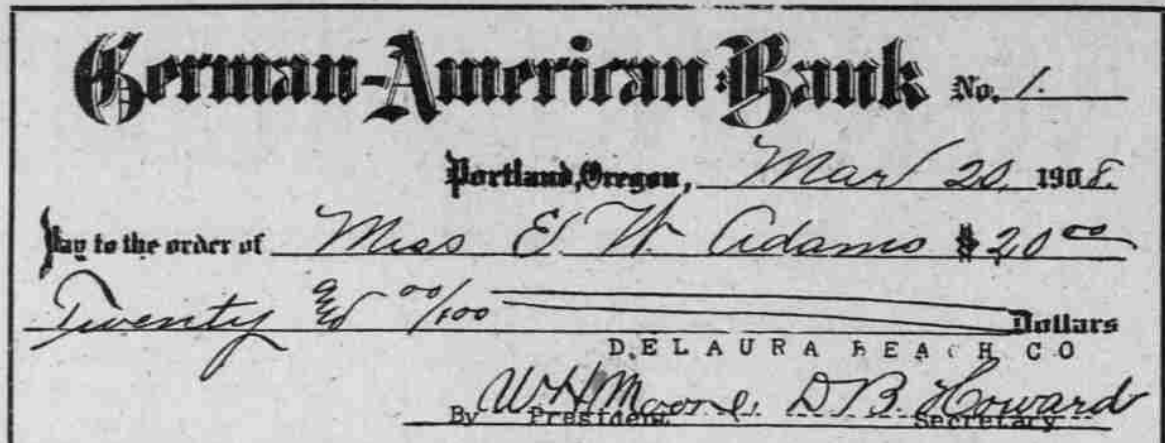 German-American Bank No. 1.
Portland, Oregon, Mar 20, 1908.
Pay to the order of Miss E W. Adams $ 20 00
Twenty and 00/100 Dollars
DELAURA BEACH CO
By W H Moore. D. B. Howard
President Secretary